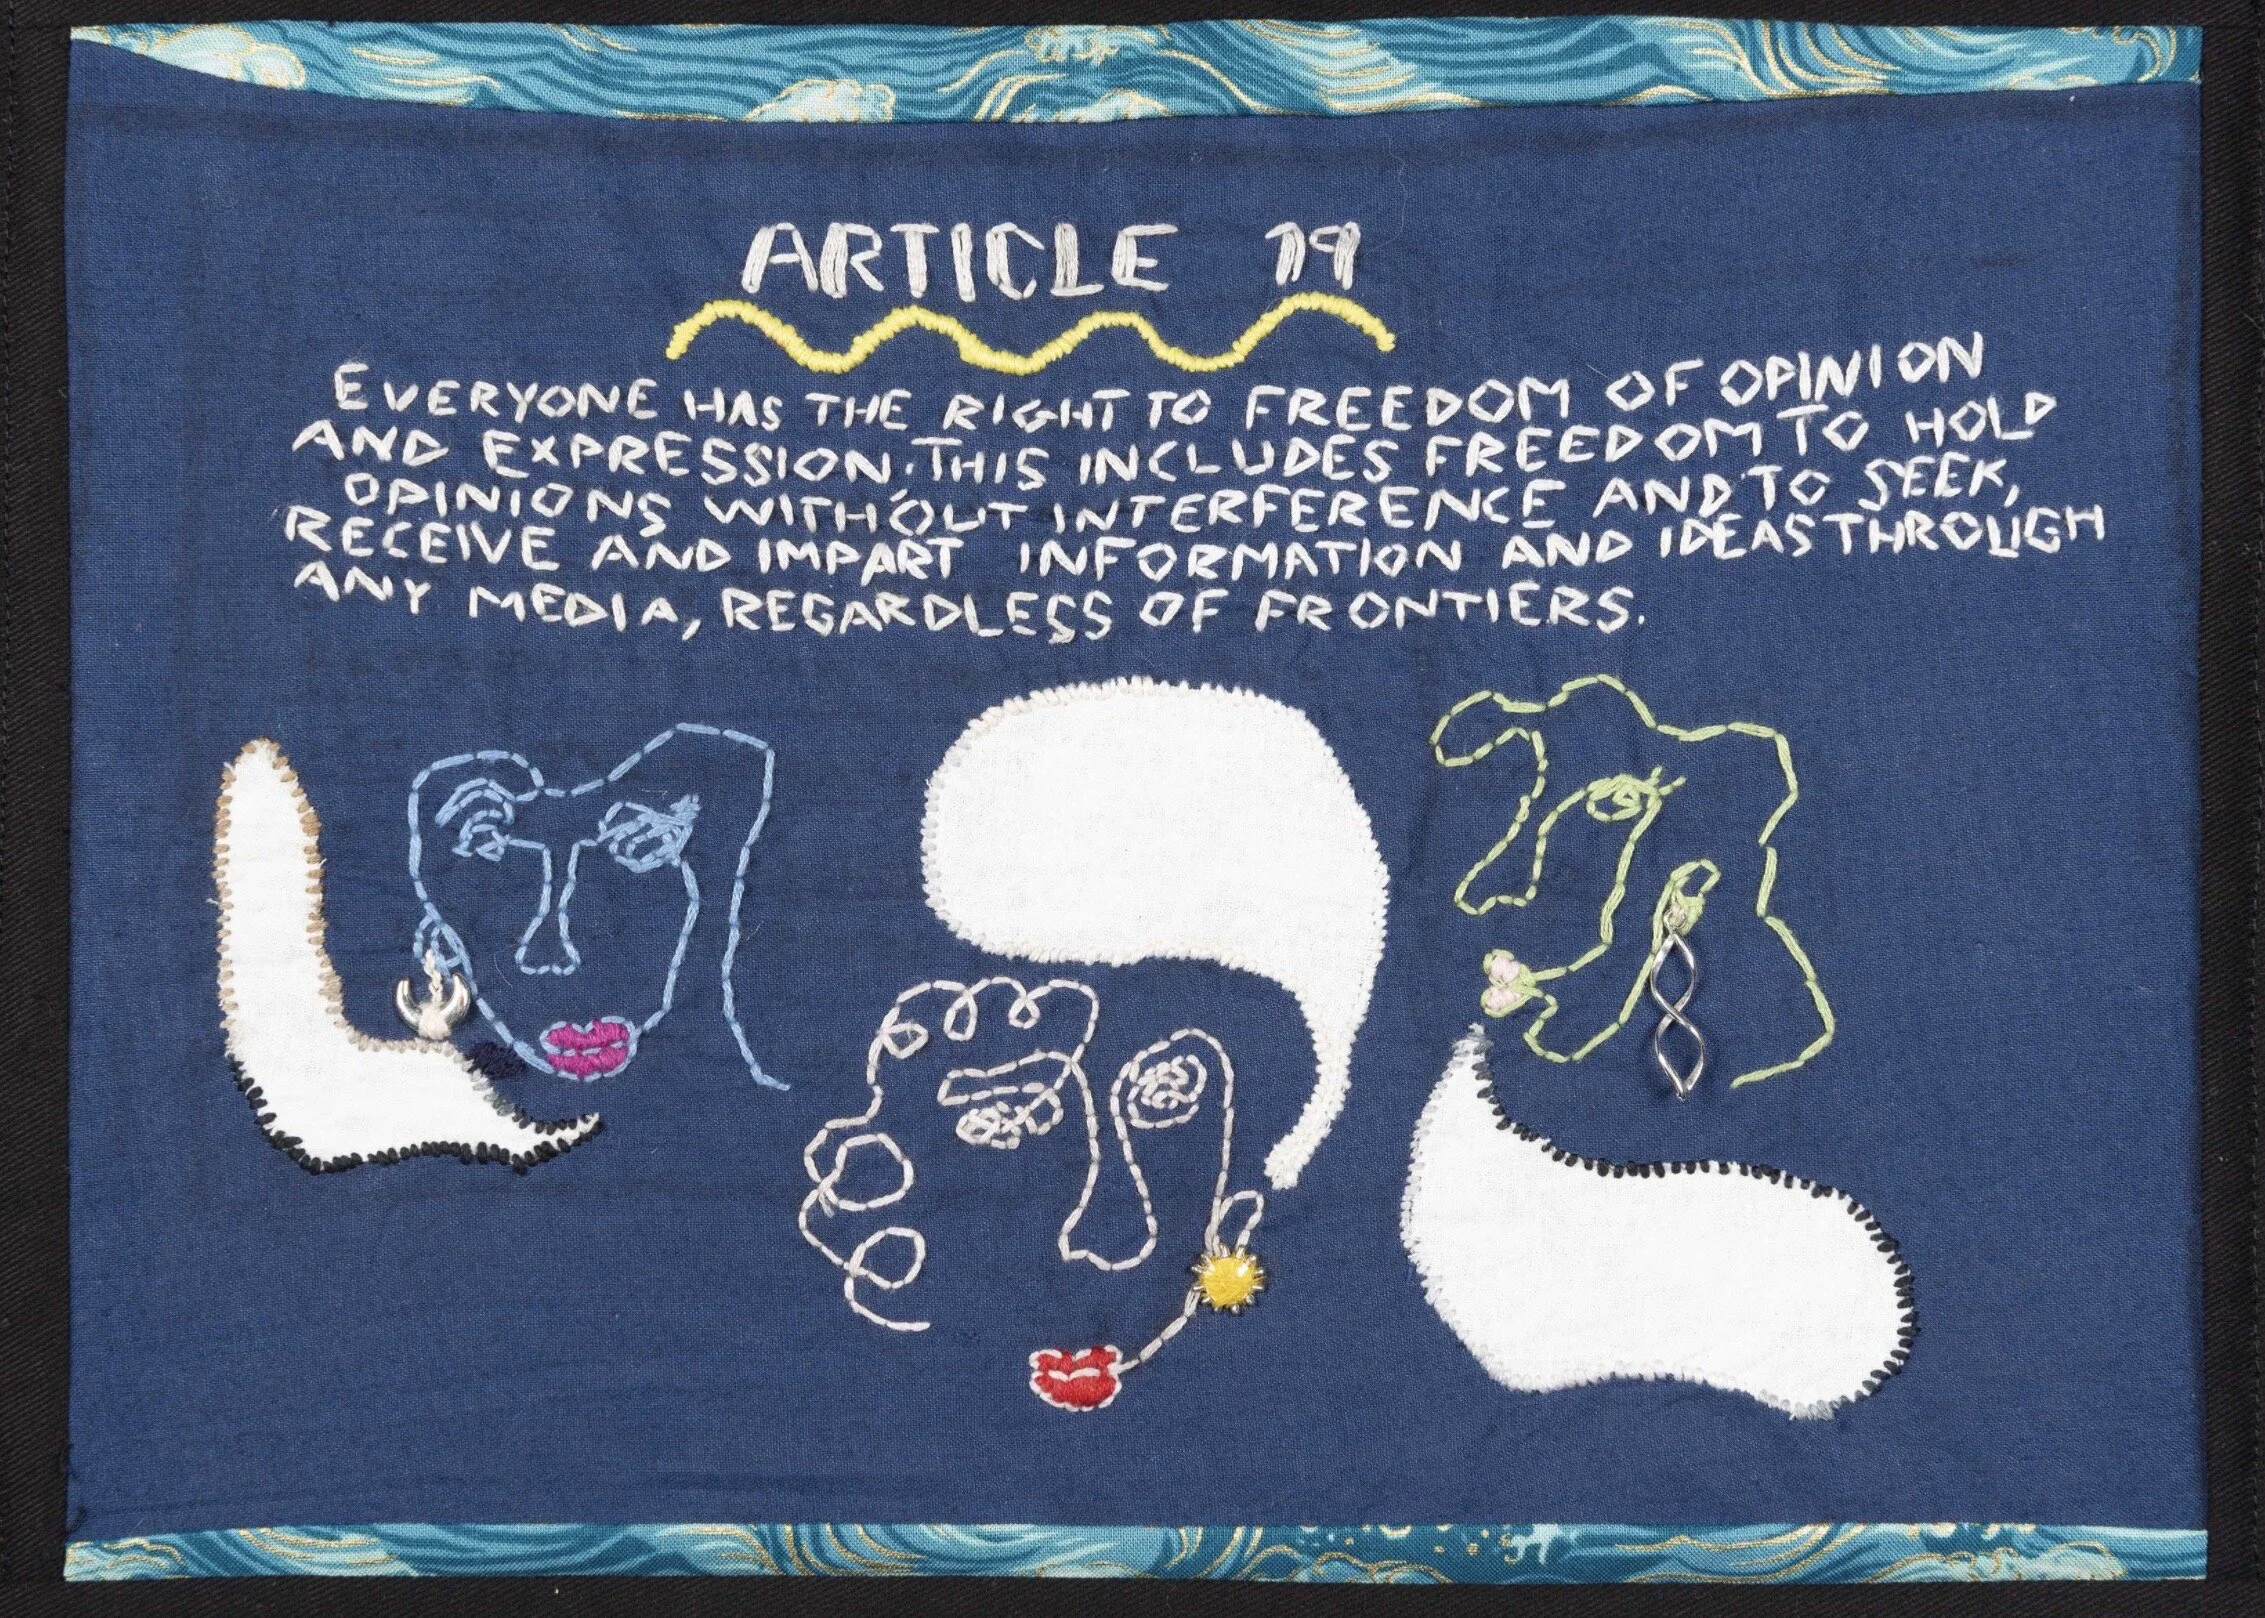 ARTICLE 19
EVERYONE HAS THE RIGHT TO FREEDOM OF OPINION
AND EXPRESSION. THIS INCLUDES FREEDOM TO HOLD
OPINIONS WITHOUT INTERFERENCE AND TO SEEK,
RECEIVE AND IMPART INFORMATION AND IDEAS THROUGH
ANY MEDIA, REGARDLESS OF FRONTIERS.